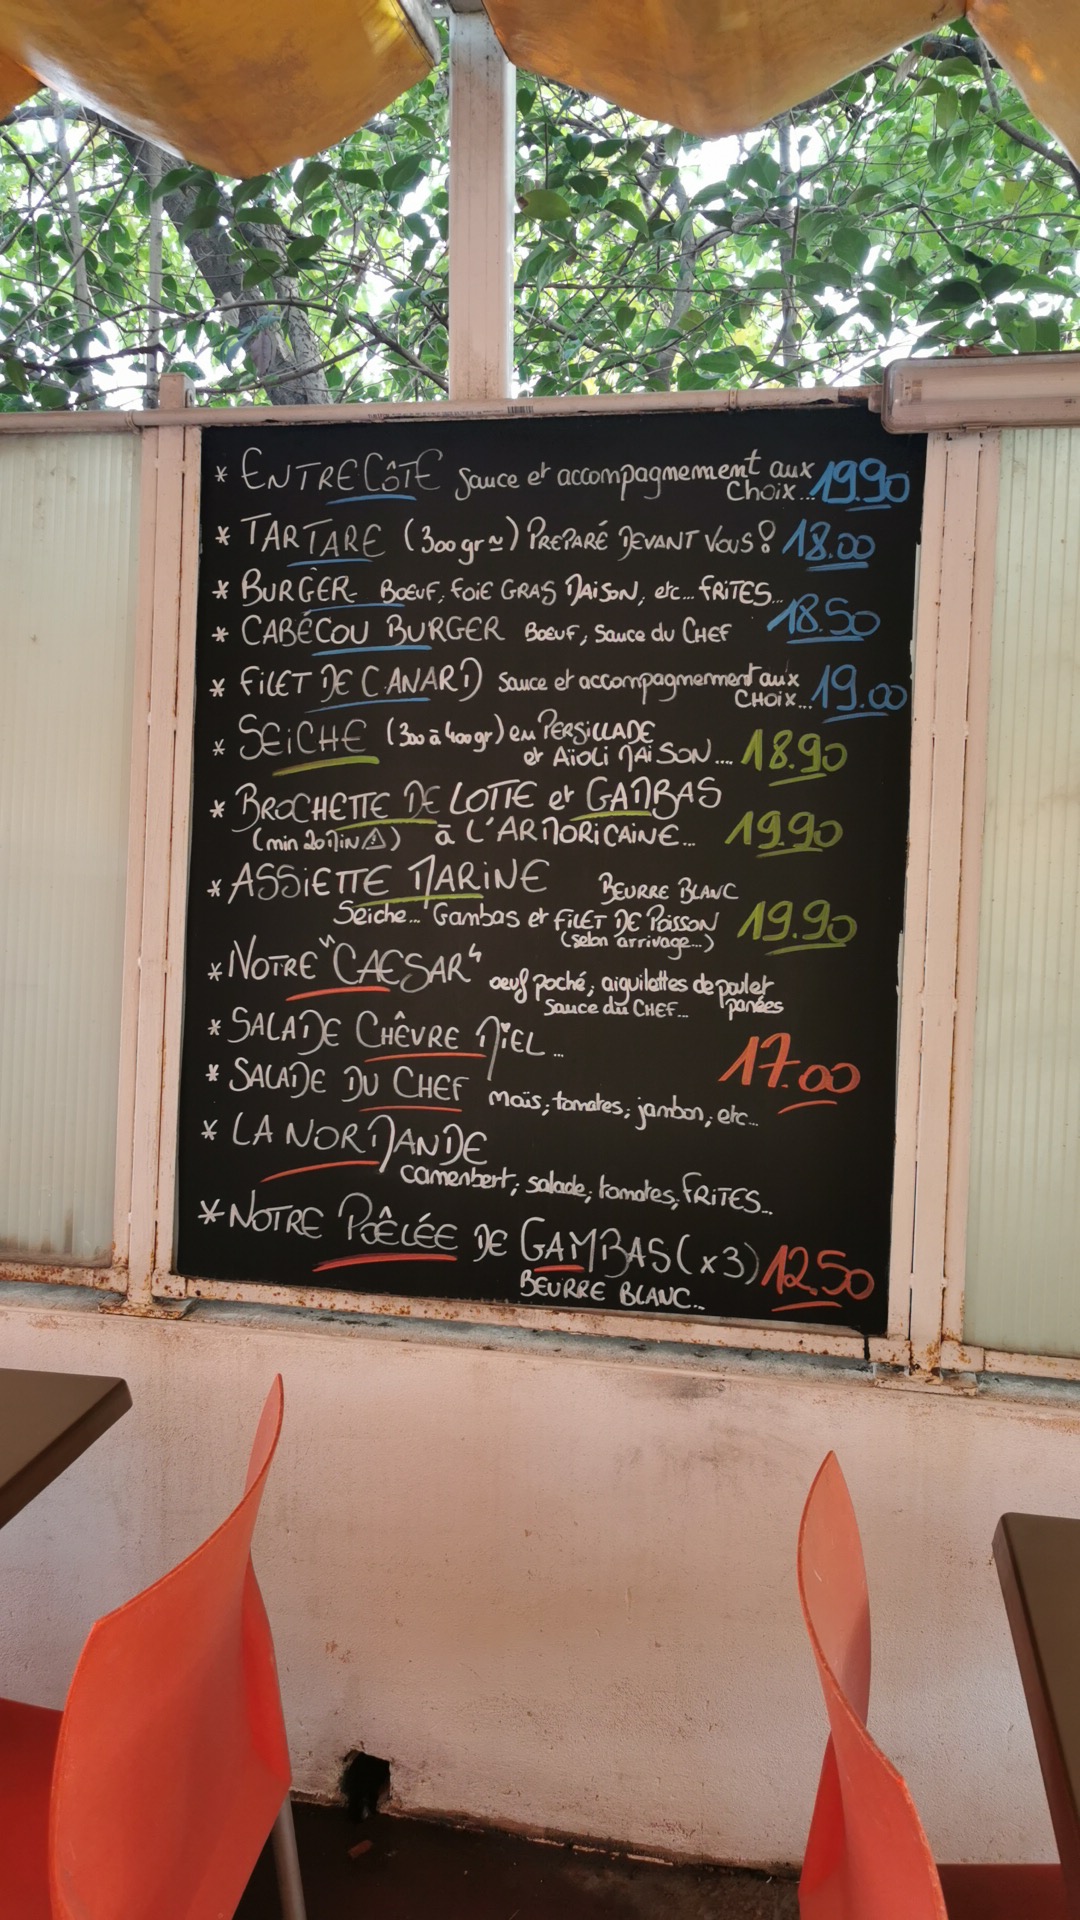 * ENTRECÔTE Sauce et accompagnement aux
choix... 19.90
* TARTARE (300 gr ≃) PREPARÉ DEVANT VOUS! 18.00
* BURGER BOEUF, FOIE GRAS MAISON, etc... FRITES...
* CABÉCOU BURGER BOEUF, Sauce du CHEF 18.50
* FILET DE CANARD Sauce et accompagnement aux
CHOIX... 19.00
* SEICHE (300 à 400 gr) en PERSILLADE
et Aïoli MAISON.... 18.90
* BROCHETTE DE LOTTE et GAMBAS
(min 20 Min ⚠) à L'ARMORICAINE... 19.90
* ASSIETTE MARINE BEURRE BLANC
Seiche... Gambas et FILET DE POISSON 19.90
(selon arrivage...)
* NOTRE "CAESAR" oeuf poché, aiguilettes de poulet
Sauce du CHEF... panées
* SALADE CHÊVRE MIEL ...
17.00
* SALADE DU CHEF maïs, tomates, jambon, etc...
* LA NORMANDE
camenbert, salade, tomates, FRITES...
* NOTRE POÊLÉE DE GAMBAS (x3) 12.50
BEURRE BLANC...